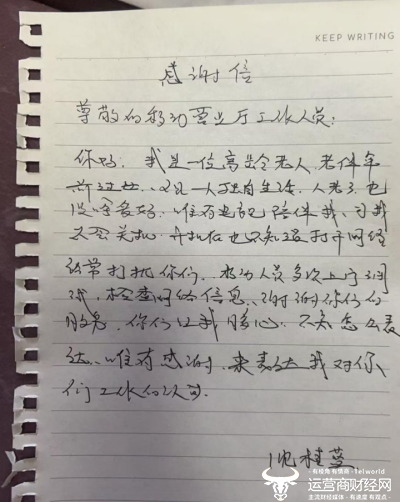 KEEP WRITING
感谢信
尊敬的移动营业厅工作人员:
你好,我是一位高龄老人,老伴年
前过世,又是一人独自生活,人老了,也
没啥爱好,唯有电视陪伴我,可我
又会关机,开机后也不知道打开网络
经常打扰你们,移动人员多次上门调
试,检查网络信息,谢谢你们的
服务,你们让我暖心,不知怎么表
达,唯有感谢,来表达我对你
们工作的认可.
沈桂英
运营商财经网
·有视角 有情商·Telworld
主流财经媒体·有速度 有观点